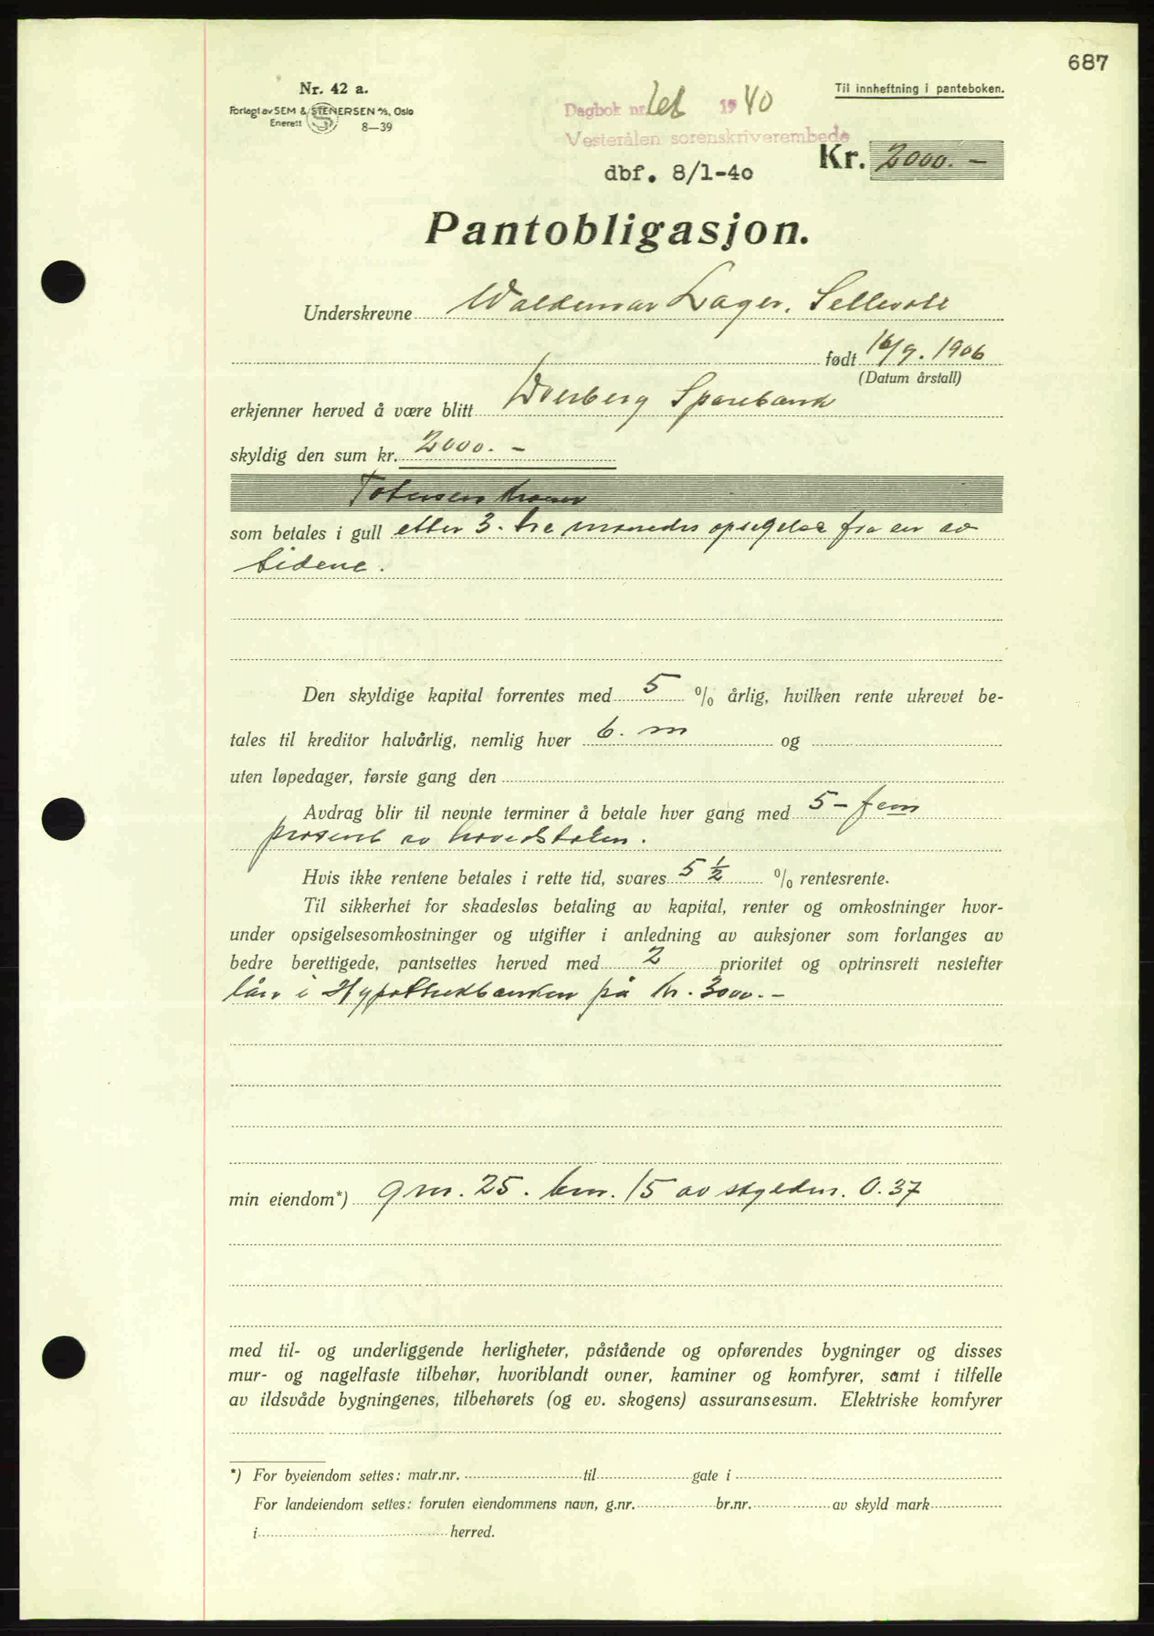 687
Nr. 42 a.
Forlagt av SEM & STENERSEN A/S, Oslo
Enerett 8—39
Til innheftning i panteboken.
Dagbok nr. 1940
Vesterålen sorenskriverembede
dbf. 8/1-40
Kr. 2000.-
Pantobligasjon.
Underskrevne Waldemar Lager,
født 16/9. 1906
(Datum årstall)
erkjenner herved å være blitt Sparebank
skyldig den sum kr. 2000.-
Totusen kroner
som betales i gull etter 3. tre måneders opsigelse fra en av
sidene.
Den skyldige kapital forrentes med 5 % årlig, hvilken rente ukrevet be-
tales til kreditor halvårlig, nemlig hver 6. m og
uten løpedager, første gang den
Avdrag blir til nevnte terminer å betale hver gang med 5 - fem
prosent av hovedstolen.
Hvis ikke rentene betales i rette tid, svares 5 ½ % rentesrente.
Til sikkerhet for skadesløs betaling av kapital, renter og omkostninger hvor-
under opsigelsesomkostninger og utgifter i anledning av auksjoner som forlanges av
bedre berettigede, pantsettes herved med 2 prioritet og optrinsrett nestefter
lån i Hypothekbanken på kr. 3000.-
min eiendom*) gnr. 25. bnr. 15 av skyldm. 0.37
med til- og underliggende herligheter, påstående og opførendes bygninger og disses
mur- og nagelfaste tilbehør, hvoriblandt ovner, kaminer og komfyrer, samt i tilfelle
av ildsvåde bygningenes, tilbehørets (og ev. skogens) assuransesum. Elektriske komfyrer
*) For byeiendom settes: matr.nr. til gate i
For landeiendom settes: foruten eiendommens navn, g.nr. br.nr. av skyld mark
i herred.